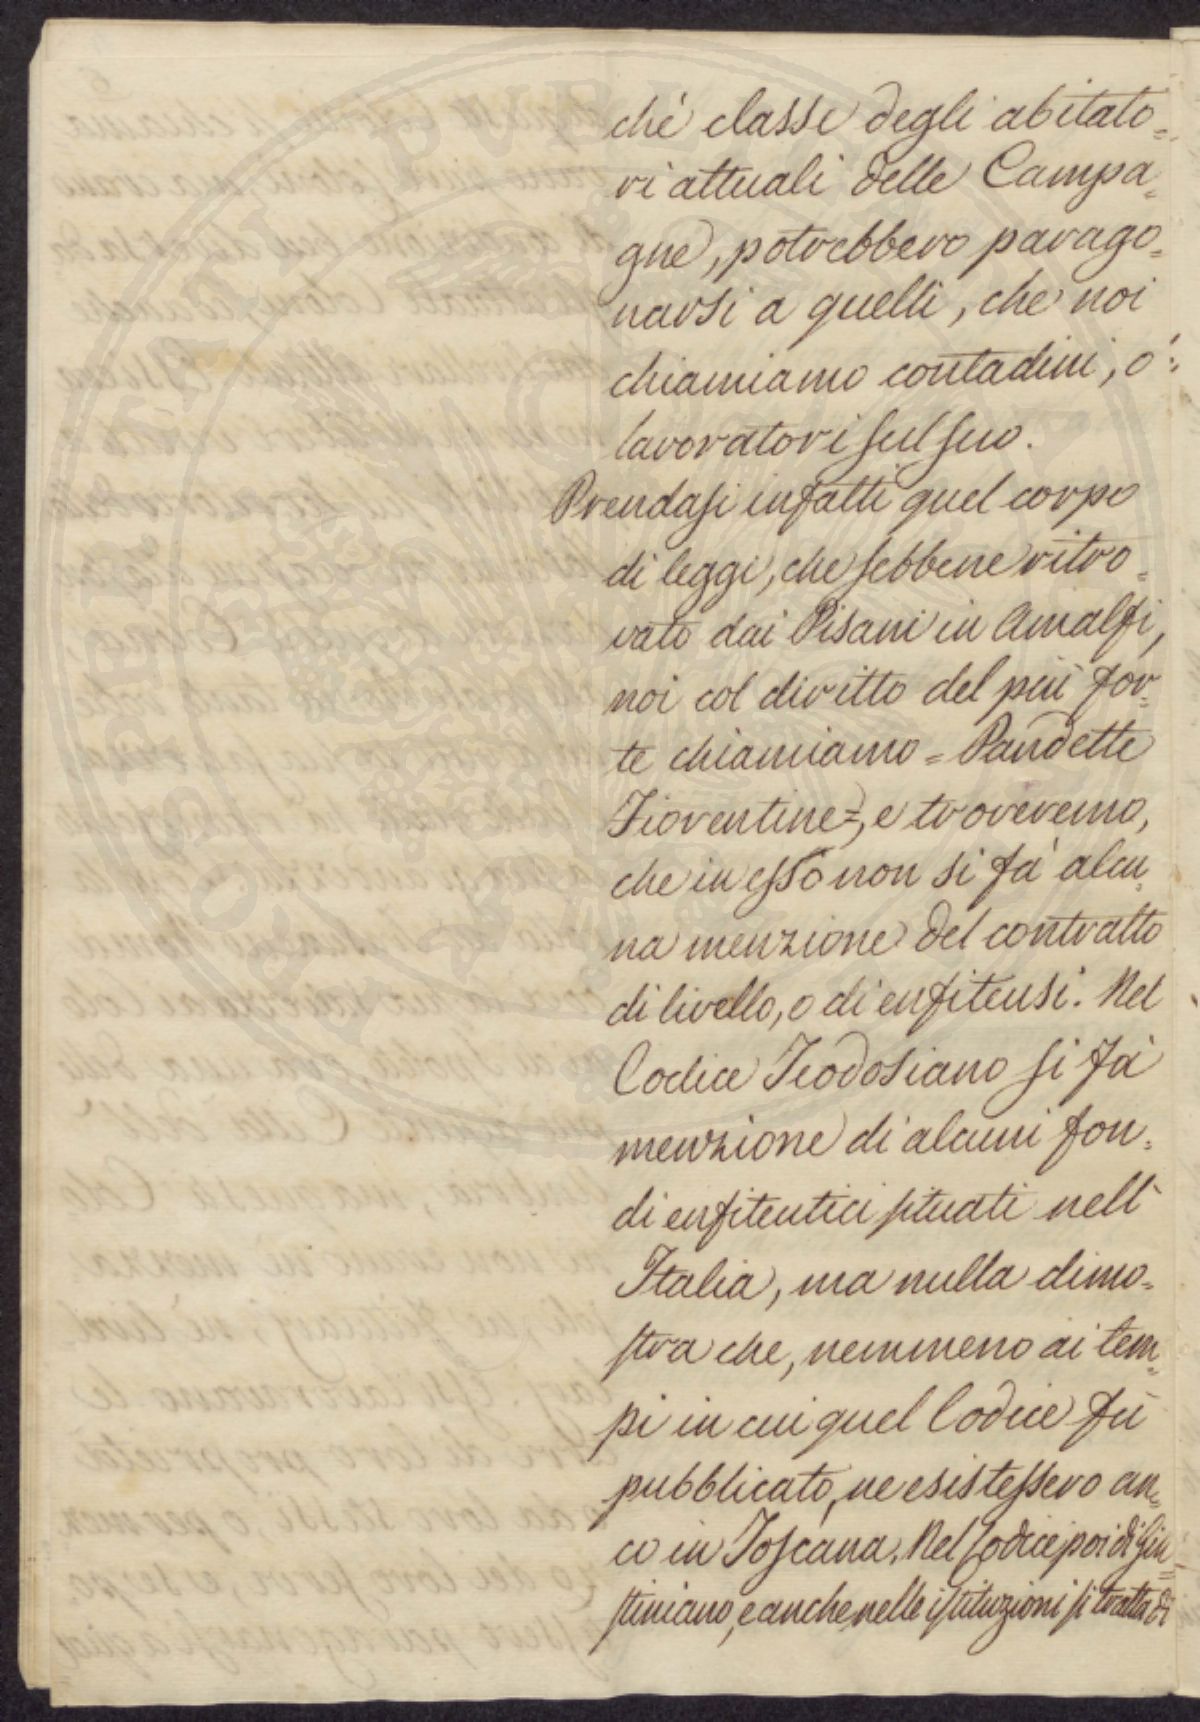 ché classe degli abitato=
ri attuali delle Campa=
gne, potrebbero parago=
narsi a quelli, che noi
chiamiamo contadini, o'=
lavoratori sul suo.
Prendasi infatti quel corpo
di leggi, che sebbene ritro=
vato dai Pisani in Amalfi,
noi col diritto del più for=
te chiamiamo = Pandette
Fiorentine =, e troveremo,
che in esso non si fà alcu=
na menzione del contratto
di livello, o di enfiteusi. Nel
Codice Teodosiano si fà
menzione di alcuni fon=
di enfiteutici situati nell'
Italia, ma nulla dimo=
stra che, nemmeno ai tem=
pi in cui quel Codice fù
pubblicato, ne esistessero an=
co in Toscana. Nel Codice poi di Giu=
stiniano, e anche nelle istituzioni si tratta di